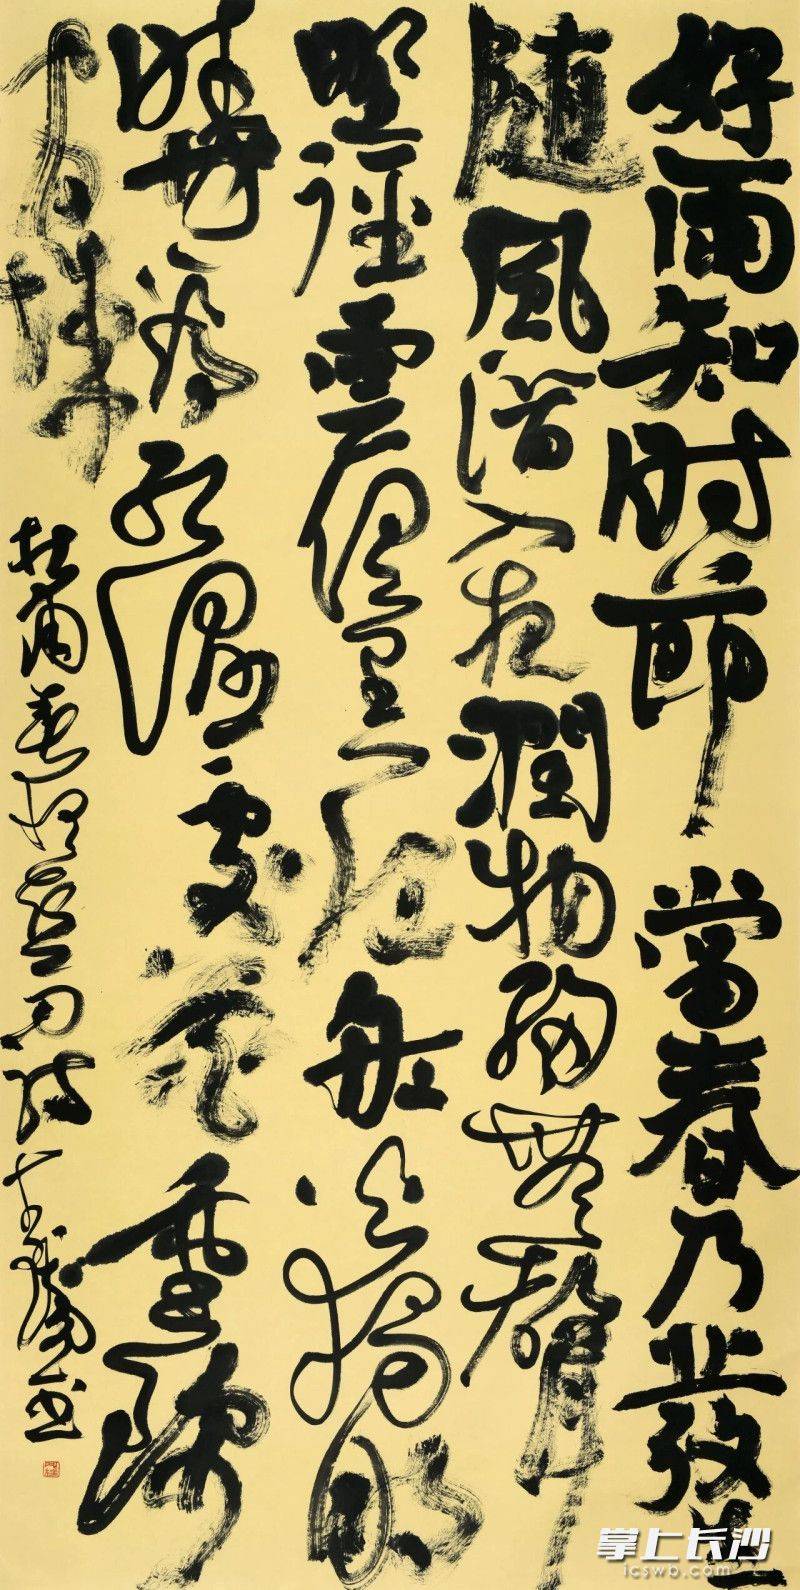 好雨知时節當春乃發生
随風潜入夜潤物細無聲
野徑雲俱黑江船火獨明
曉看紅濕處花重錦
官城
杜甫春夜喜雨詩
掌上长沙
icswb.com